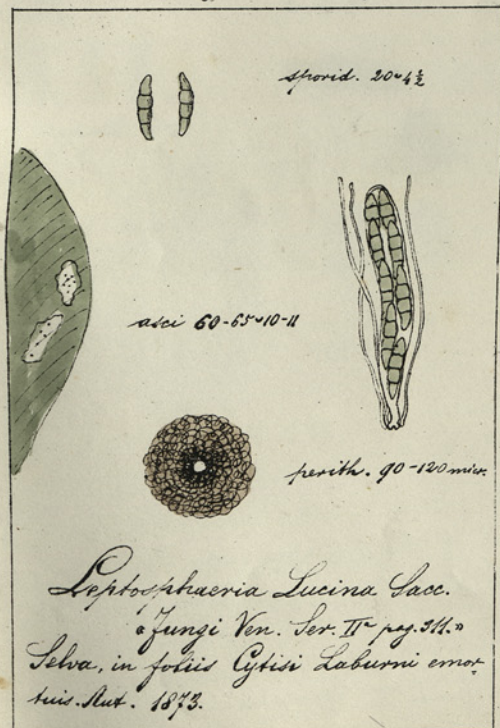 sporid. 20=4½
asci 60-65=10-11
perith. 90-120 micr.
Leptosphaeria Lucina Sacc.
"Fungi Ven. Ser. IIª pag. 311."
Selva, in foliis Cytisi Laburni emor-
tuis. Aut. 1873.